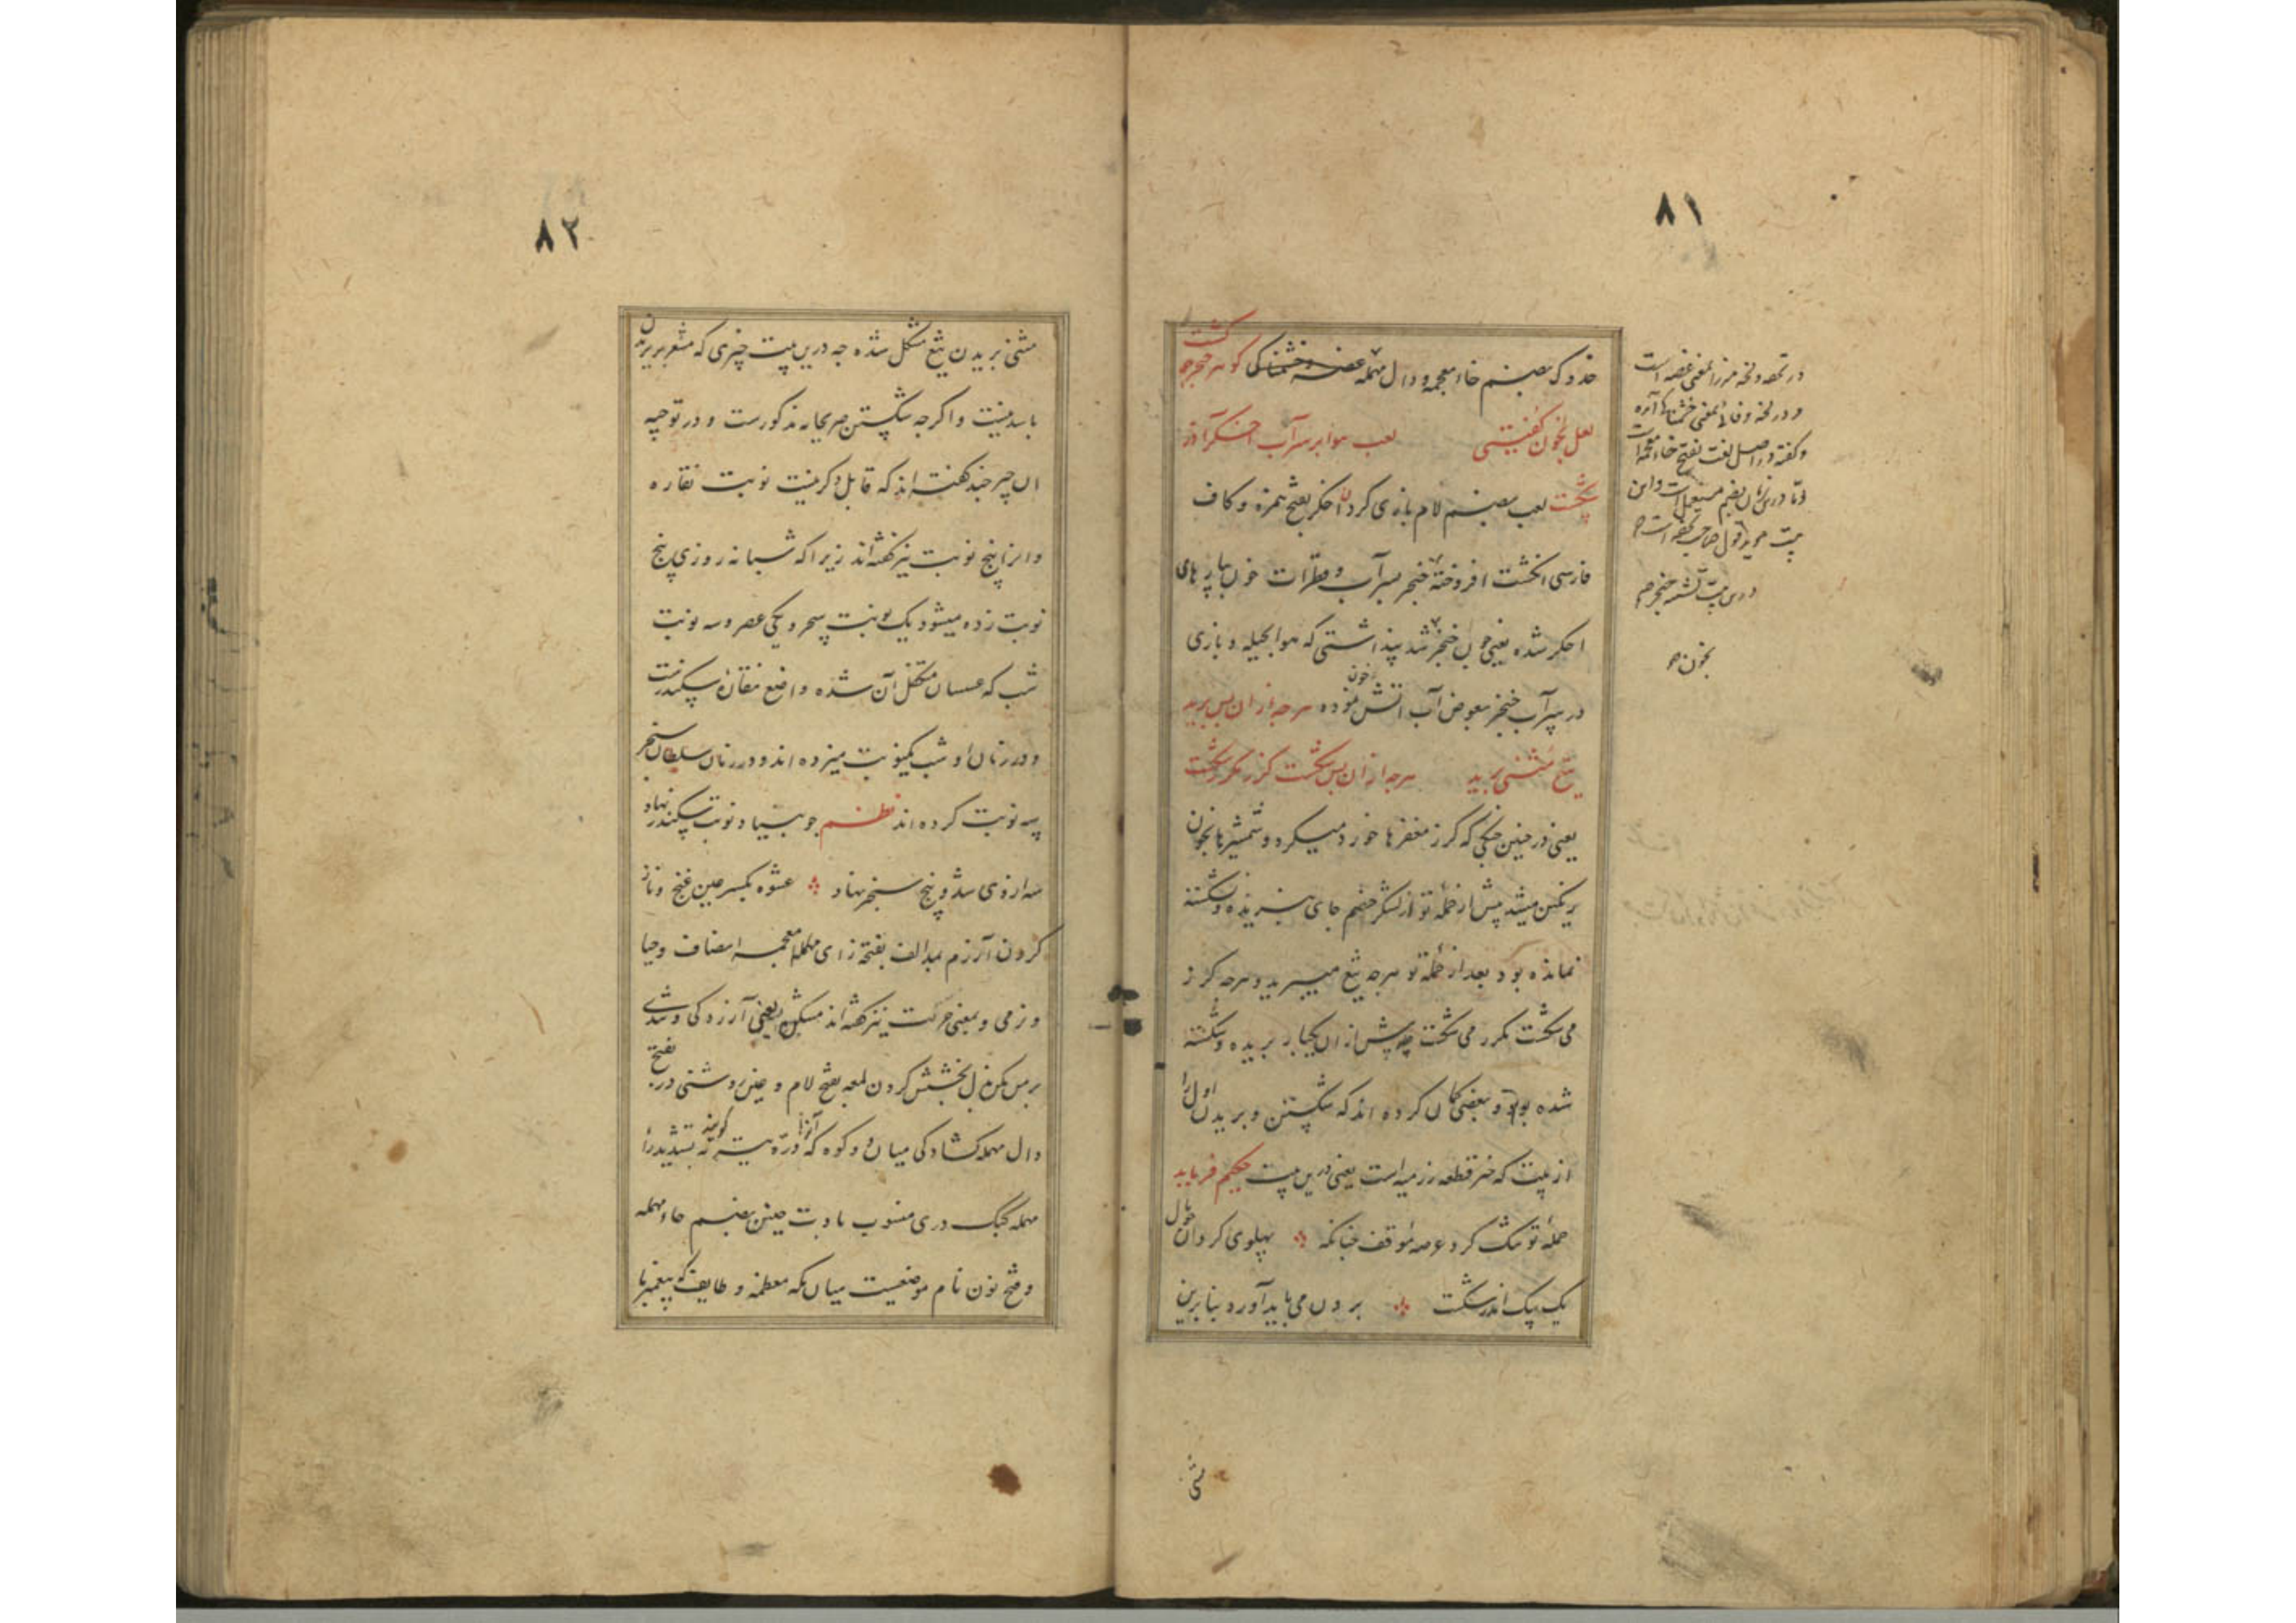 ۸۱
خدوک بضم خاء معجمه و دال مهمله غصه و خشمناکی گوهر خنجر چو گشت
لعل بخون گفتیئی لعب هوا بر سر آب اخگر آذر
شکست لعب بضم لام بازی کردن اخگر بفتح همزه و کاف
فارسی انگشت افروخته خنجر سر آب و قطرات خون پارهای
اخگر شده یعنی چون خنجر شد پنداشتی که هوا بحیله و بازی
در سر آب خنجر بعوض آب آتش خون نموده هرچه از ان پس برید
تیغ مثنی برید هرچه از ان پس شکست گرز مکرر شکست
یعنی در چنین جنگی که گرز مغفرها خورد میکرد و شمشیرها بخون
رنگین میشد پیش از حمله تو از لشکر خصم جای نبریده و نشکسته
نمانده بود بعد از حمله تو هرچه تیغ میبرید و هرچه گرز
می شکست مکرر می شکست چه پیش از ان یکبار بریده و شکسته
شده بود و بعضی گمان کرده اند که شکستن و بریدن اول را
از بیت که خبر قطعه رزمیه است یعنی درین بیت حکیم فرماید
حمله تو تنگ کرد عرصه موقف چنانکه پهلوی گردان
یک بیک اندر شکست برون می باید آورد بنا برین
مثنی
در تحفه و نخه میرزا بمعنی غصه است
و در نخه وفائی بمعنی خشمناک آمده
و گفته در اصل لغت بفتح خاء معجمه است
و اما درین زمان بضم مستعمل است و این
بیت موید قول صاحب تحفه است
درین بیت تشنه خنجرم
بخون
۸۲
مثنی بریدن تیغ مشکل شده چه درین بیت چیزی که مشعر بریدن
باشد نیست و اگرچه شکستن صریحا مذکورست و در توجیه
ان چیز چند گفته اند که قابل ذکر نیست نوبت نقاره
و انرا پنج نوبت نیز گفته اند زیرا که شبانه روزی پنج
نوبت زده میشود یک نوبت بسحر و یکی عصر و سه نوبت
شب که عسسان متکفل آن شده واضع نقاره سکندرست
و در زمان او شب یکنوبت میزده اند و در زمان سلطان سنجر
سه نوبت کرده اند نظم چو بنیاد نوبت سکندر نهاد
سه از وی شد و پنج سنجر نهاد عشوه بکسر عین غنج و ناز
کردن آزرم بمد الف بفتحه زای مهمله معجمه انصاف و حیا
و نرمی و بمعنی حرکت نیز گفته اند یعنی آزردگی و تندی
برمن مکن بذل بخشش کردن لمعه بفتح لام و عین روشنی دره بفتح
دال مهمله گشادگی میان دو کوه که آنرا دره گویند نه بتشدید را
مهمله کبک دری منسوب بادبت حنین بضم حاء مهمله
و فتح نون نام موضعیست میان مکه معظمه و طایف که پیغمبر ما